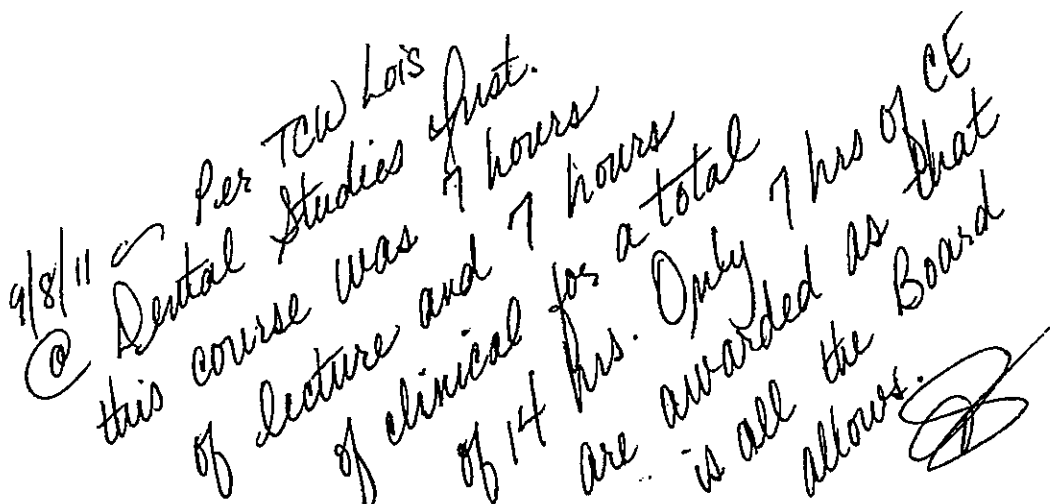 9/8/11 - Per TCW Lois
@ Dental Studies Inst.
this course was 7 hours
of lecture and 7 hours
of clinical for a total
of 14 hrs. Only 7 hrs of CE
are awarded as that
is all the Board
allows.